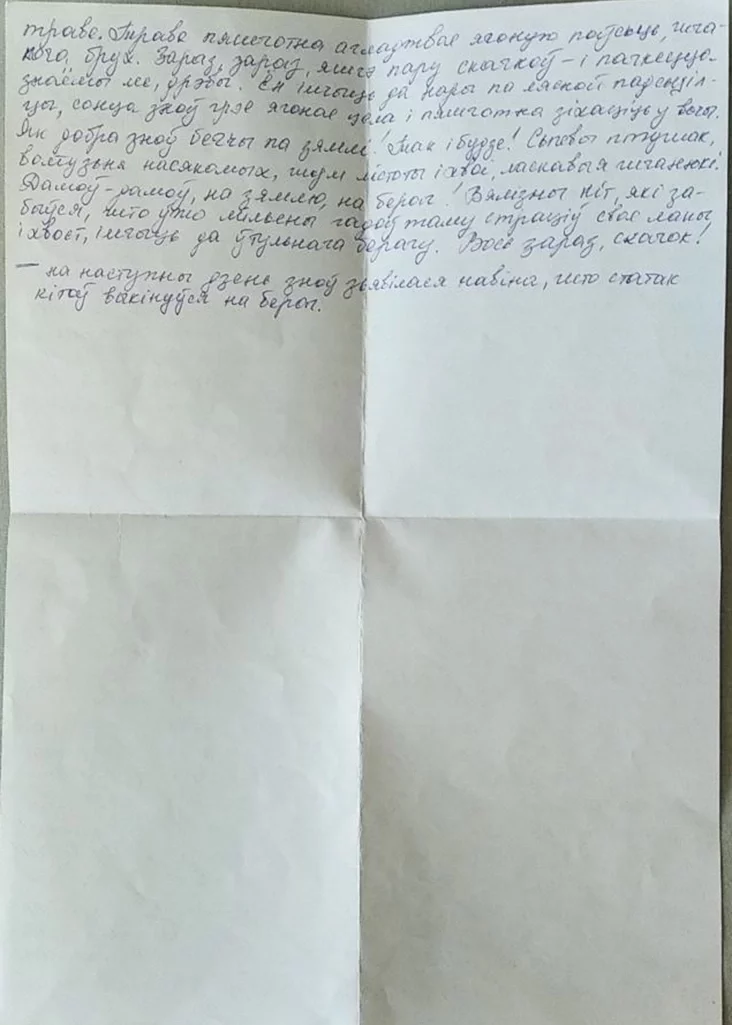 траве. Трава пяшчотна агладжвае ягоную поўсьць, шча-
коча брух. Зараз, зараз, яшчэ пару скачкоў – і пачнецца
знаёмы лес, дрэвы. Ён імчыць да нары па лясной падсьціл-
цы, сонца зноў грэе ягонае цела і пяшчотна зіхаціць у вочы.
Як добра зноў бегчы па зямлі! Так і будзе! Сьпевы птушак,
валтузьня насякомых, шум лістоты і хвоі, ласкавыя
Дамоў-дамоў, на зямлю, на бераг! Вялізны кіт, які за-
быўся, што ўжо мільёны гадоў таму страціў свае лапы
і хвост, імчыць да ўтульнага берагу. Вось зараз, скачок!
— на наступны дзень зноў зьявілася навіна, што статак
кітоў выкінуўся на бераг.